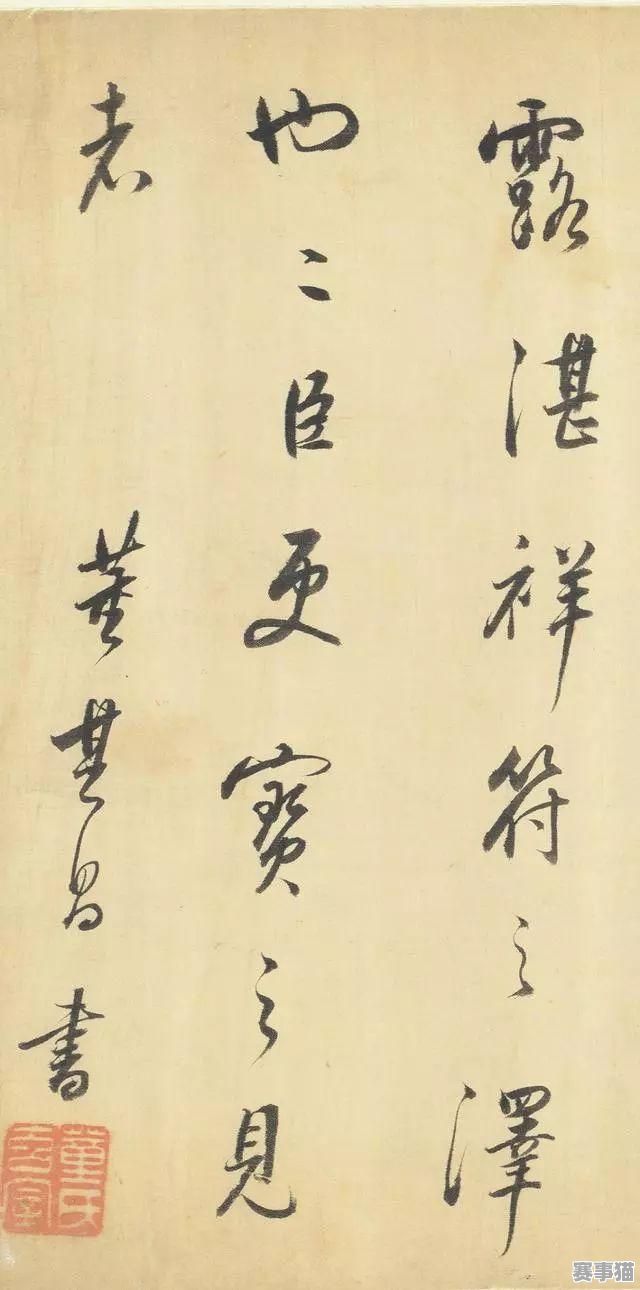 露湛祥符之澤
也二臣更寶之見
者 董其昌書
董氏玄宰
赛事猫